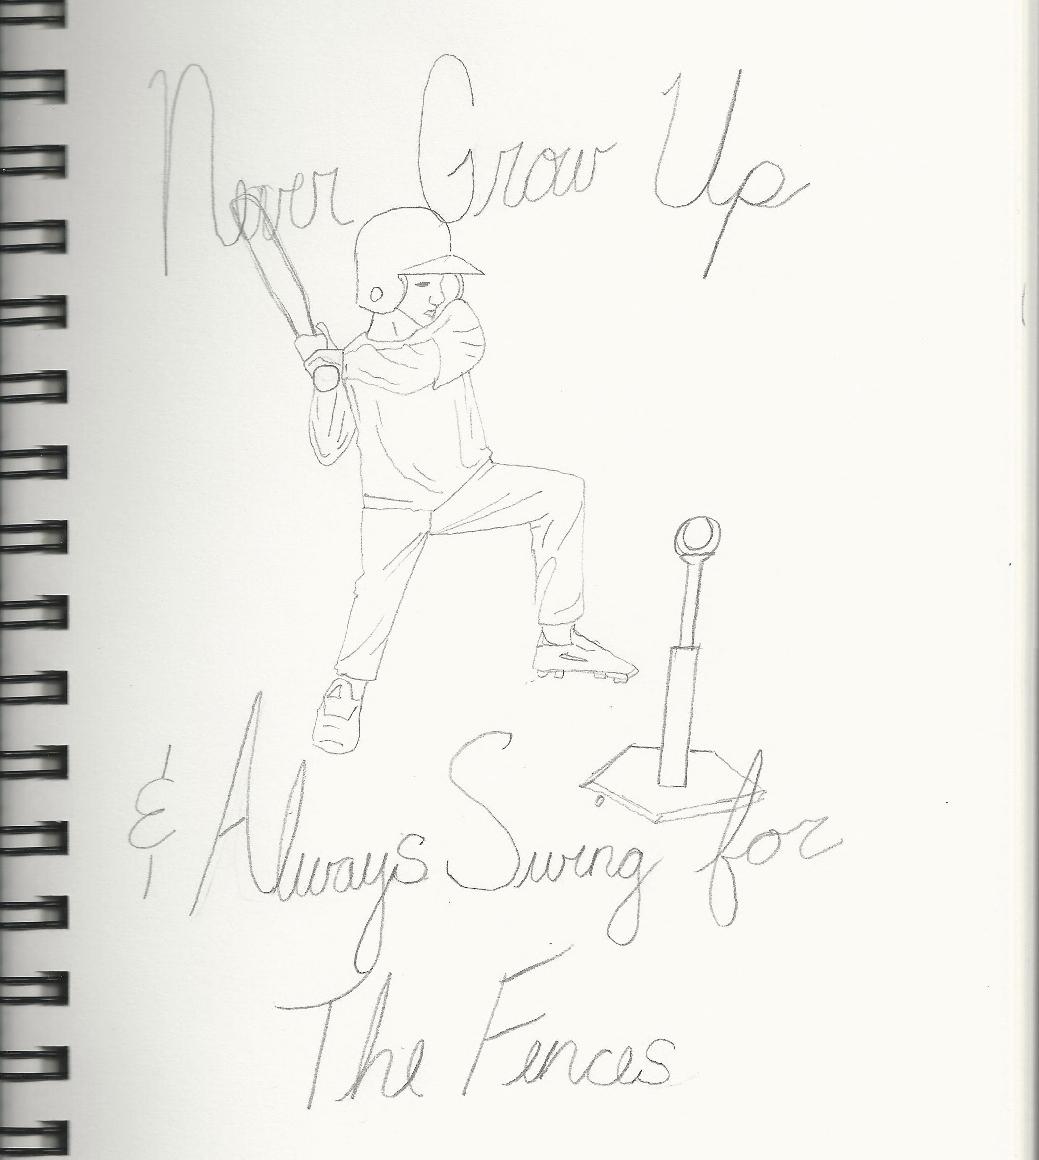 Never Grow Up
& Always Swing for
The Fences